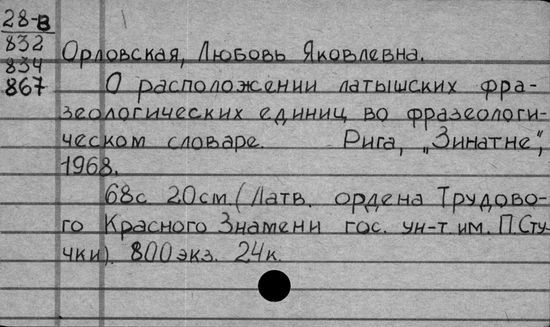 28-В
832
834
867
Орловская, Любовь Яковлевна.
О расположении латышских фра-
зеологических единиц во фразеологи-
ческом словаре. Рига, „Зинатне",
1968.
68с 20см. (Латв. ордена Трудово-
го Красного Знамени гос. ун-т им. П. Сту-
чки). 800 экз. 24к.